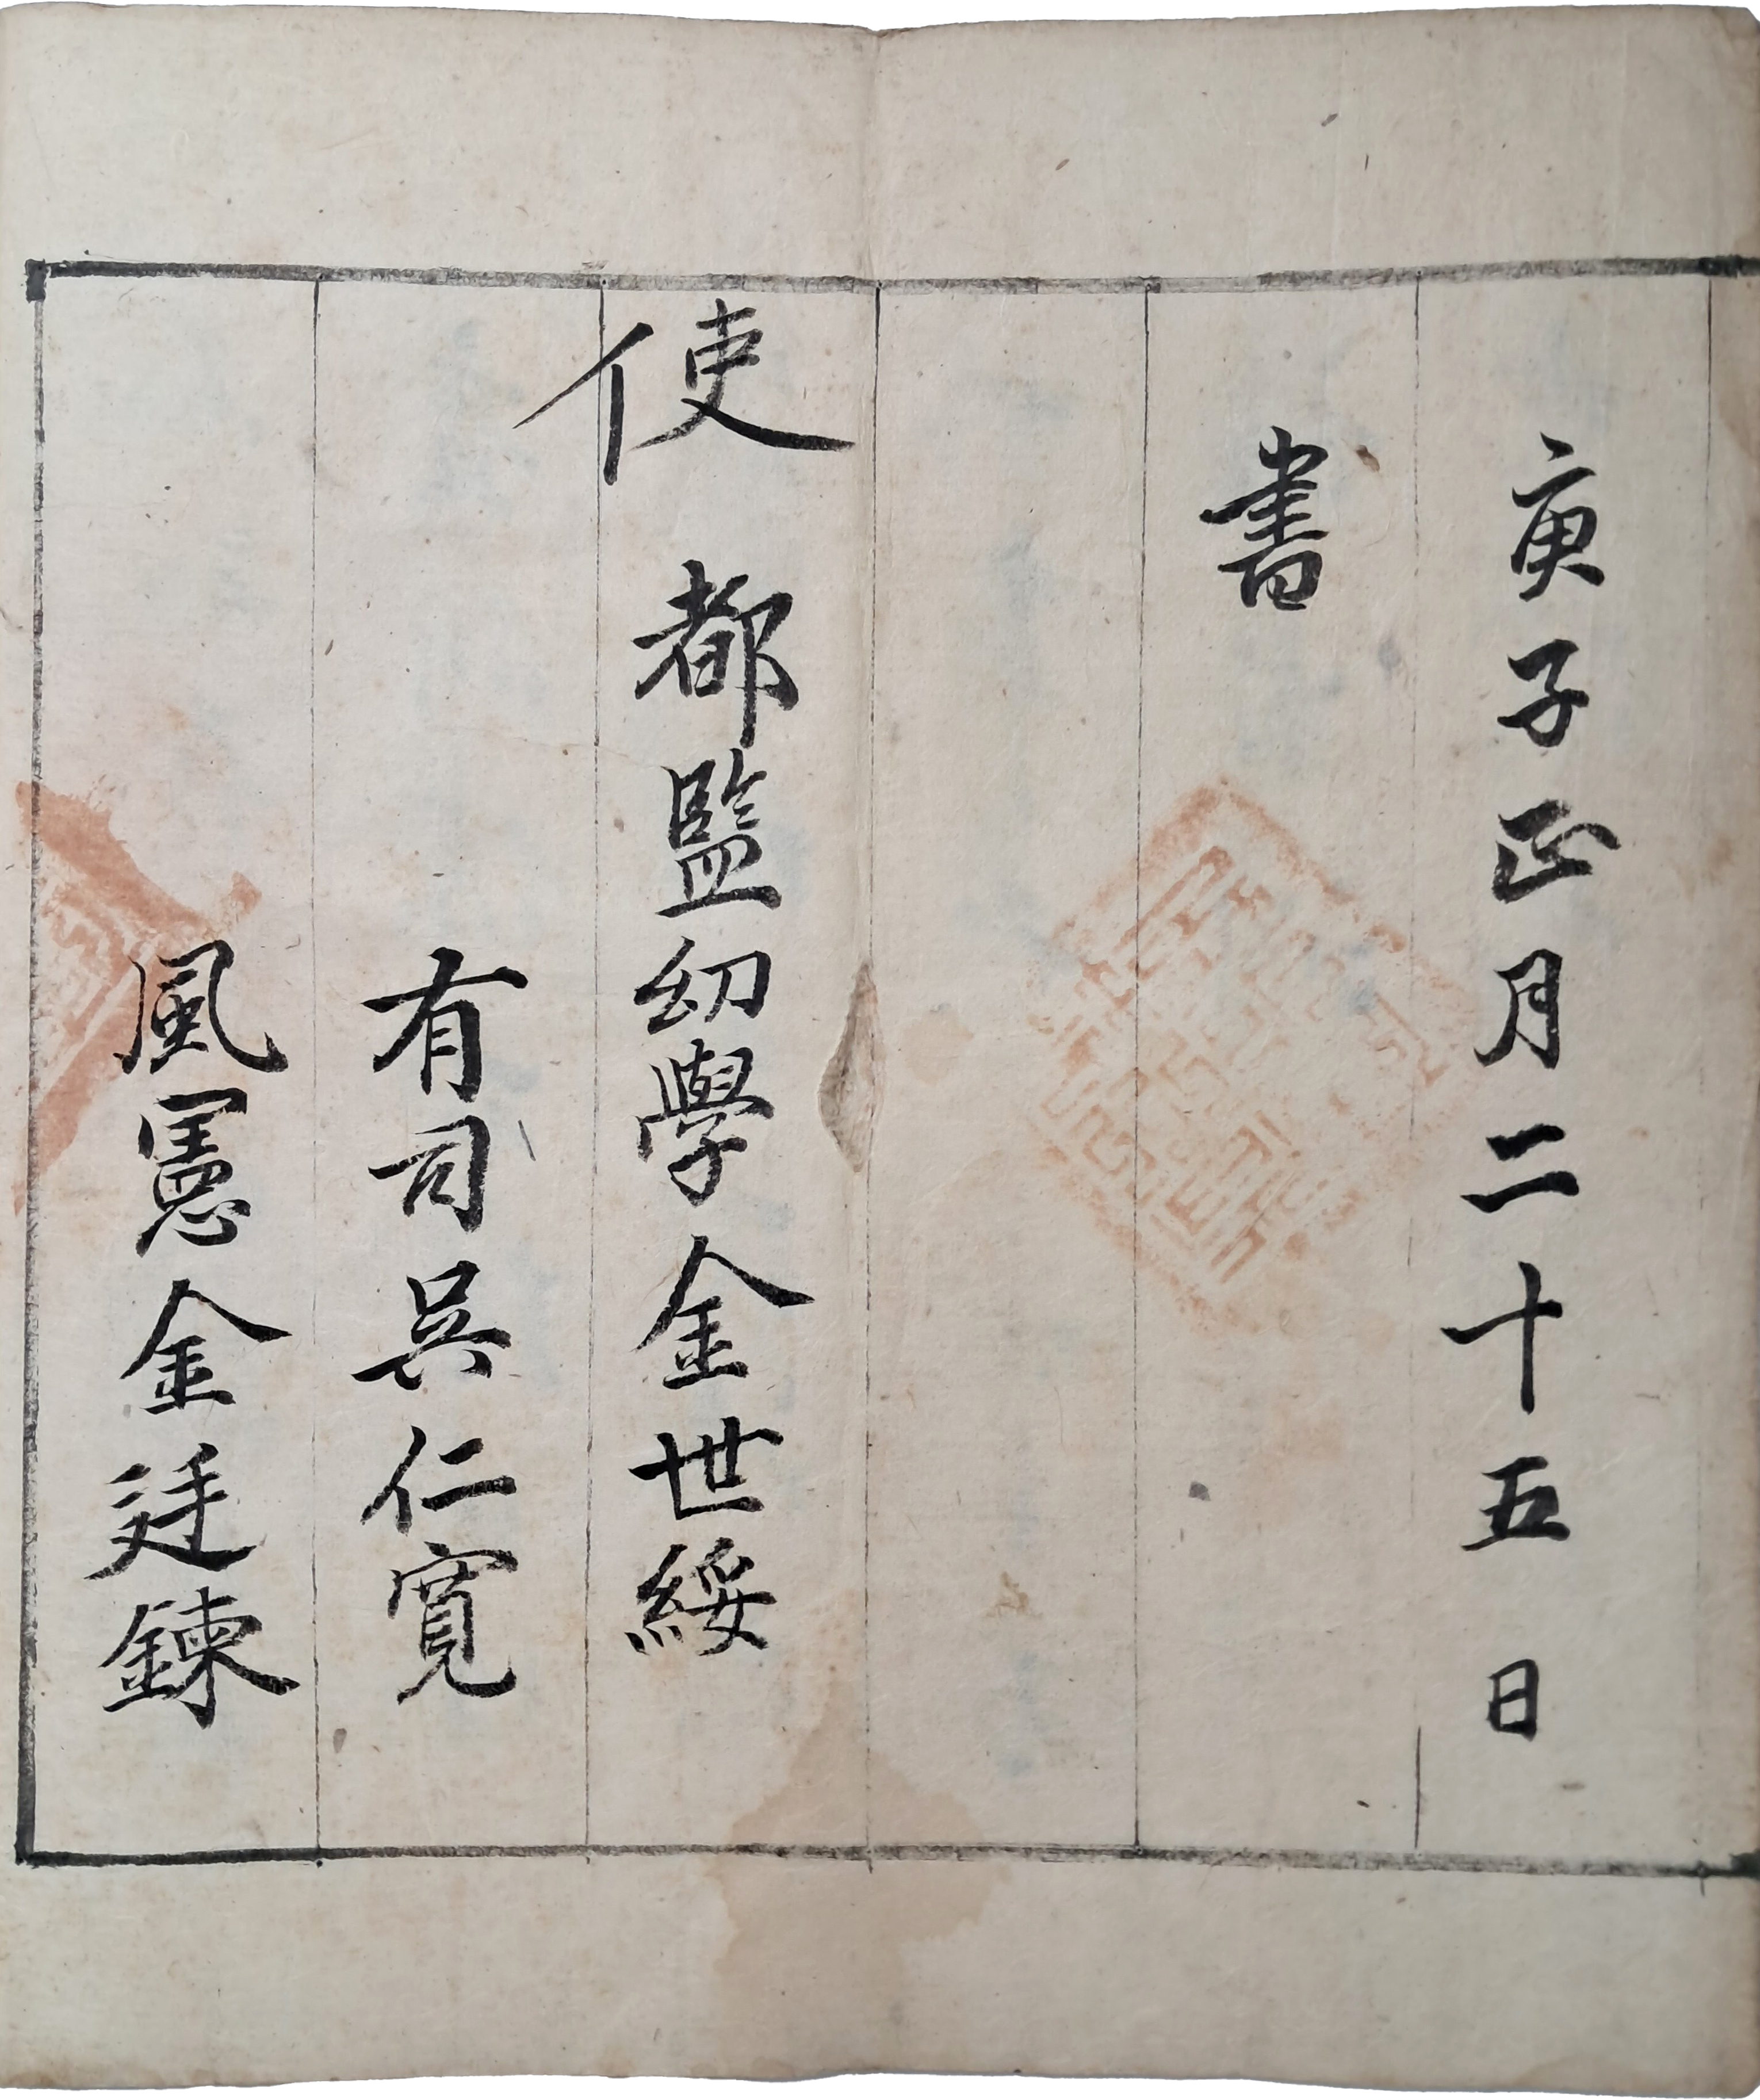 庚子正月二十五日
書
使
都監幼學金世綏
有司吳仁寬
風憲金廷鍊